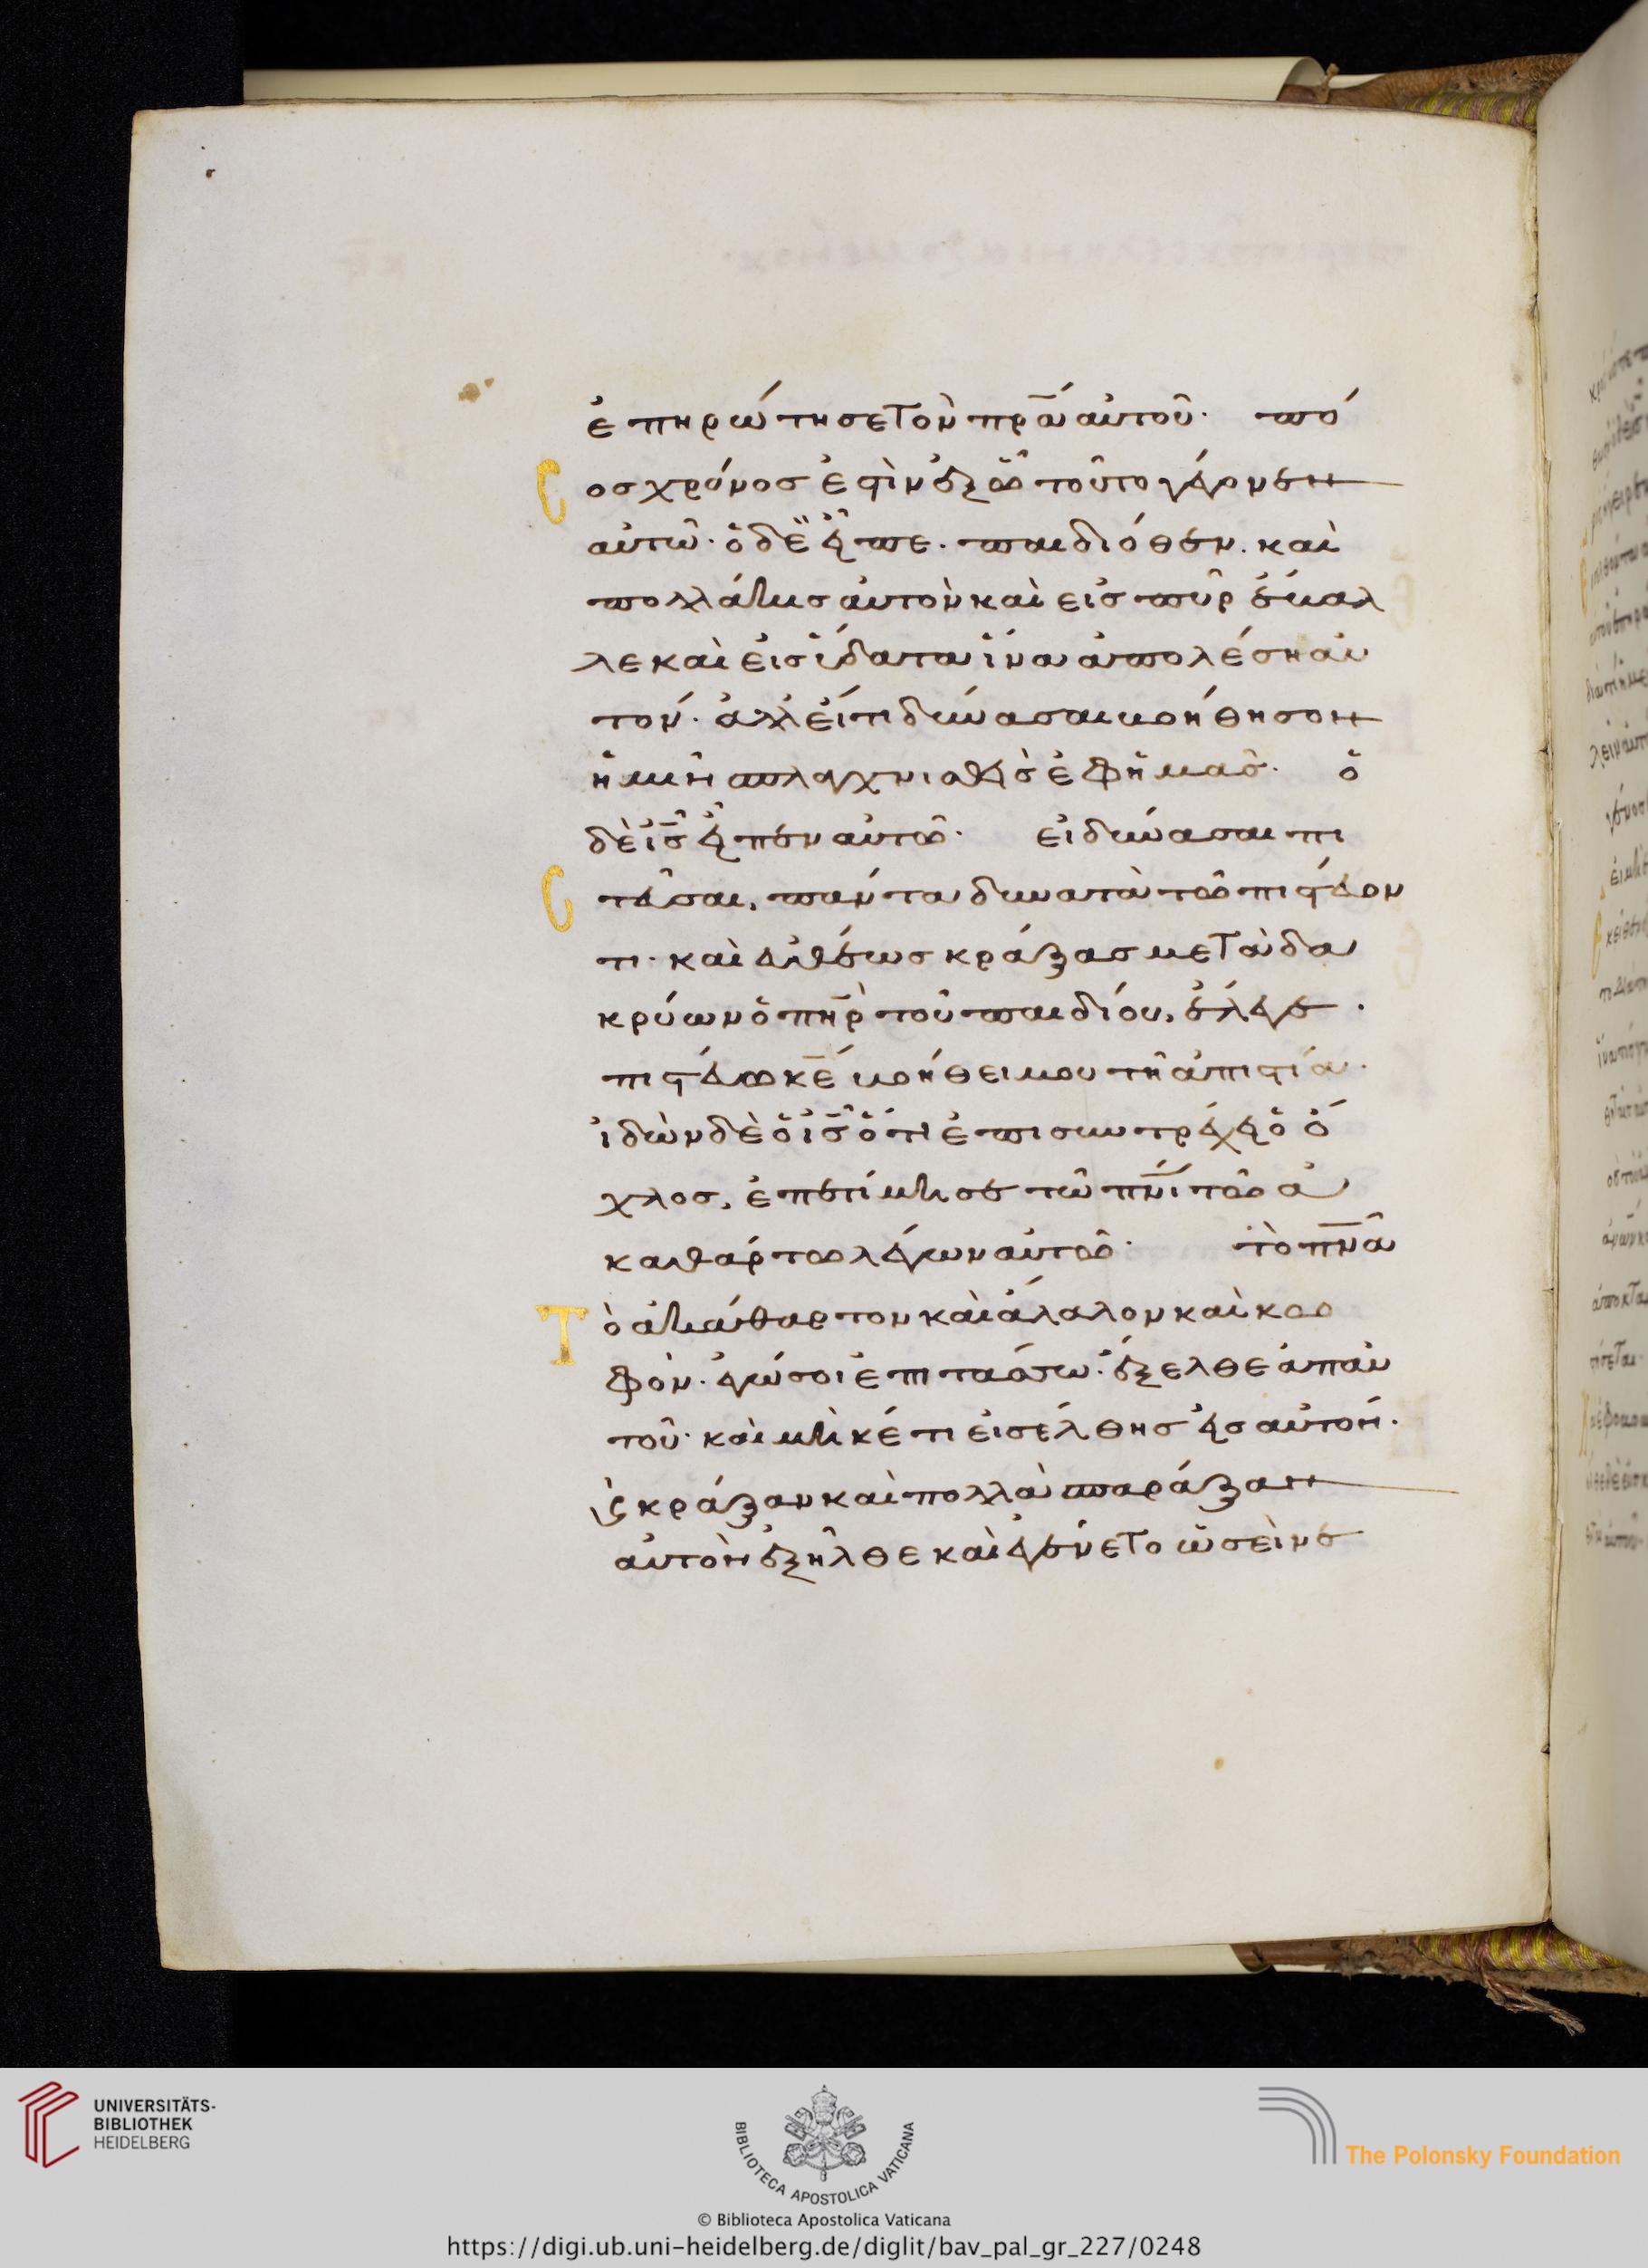 ἐπηρώτησε τὸν πρ̅α αὐτοῦ· πό
Cος χρόνος ἐστὶν ἐξ οὗ τοῦτο γέγονεν
αὐτῶ· ὁ δὲ εἶπε· παιδιόθεν· καὶ
πολλάκις αὐτὸν καὶ εἰς πῦρ ἔβαλ
λε καὶ εἰς ὕδατα ἵνα ἀπολέση αὐ
τόν· ἀλλ εἴ τι δύνασαι βοήθησον
ἡμῖν σπλαγχνισθεὶς ἐφ ἡμᾶς· ὁ
δὲ ι̅ς̅ εἶπεν αὐτοῦ· εἰ δύνασαι πι
Cτεῦσαι, πάντα δυνατὰ τοῦ πιστεύον
τι· καὶ εὐθέως κράξας μετὰ δα
κρύων ὁ πη̅ρ̅ τοῦ παιδίου, ἔλεγε·
πιστεύου κ̅ε̅ βοήθει μου τῆ ἀπιστία·
ἰδὼν δὲ ὁ ι̅ς̅ ὅτι ἐπισυντρέχει ὁ ὄ
χλος, ἐπετίμησε τῶ πν̅ι̅ τοῦ ἀ
καθάρτου λέγων αὐτοῦ· τὸ πν̅α̅
Τὸ ἀκάθαρτον καὶ ἄλαλον καὶ κου
φὸν· ἐγώ σοι ἐπιτάσσω· ἔξελθε ἀπ αὐ
τοῦ· καὶ μηκέτι εἰσέλθης εἰς αὐτόν·
κ(αὶ) κράξαν καὶ πολλὰ σπαράξαν
αὐτὸν ἐξῆλθε καὶ ἐγένετο ὡσεὶ νε
UNIVERSITÄTS-
BIBLIOTHEK
HEIDELBERG
BIBLIOTECA APOSTOLICA VATICANA
The Polonsky Foundation
© Biblioteca Apostolica Vaticana
https://digi.ub.uni-heidelberg.de/diglit/bav_pal_gr_227/0248